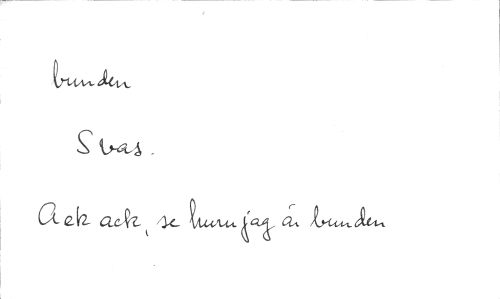 bunden
Svas.
Ack ack, se huru jag är bunden